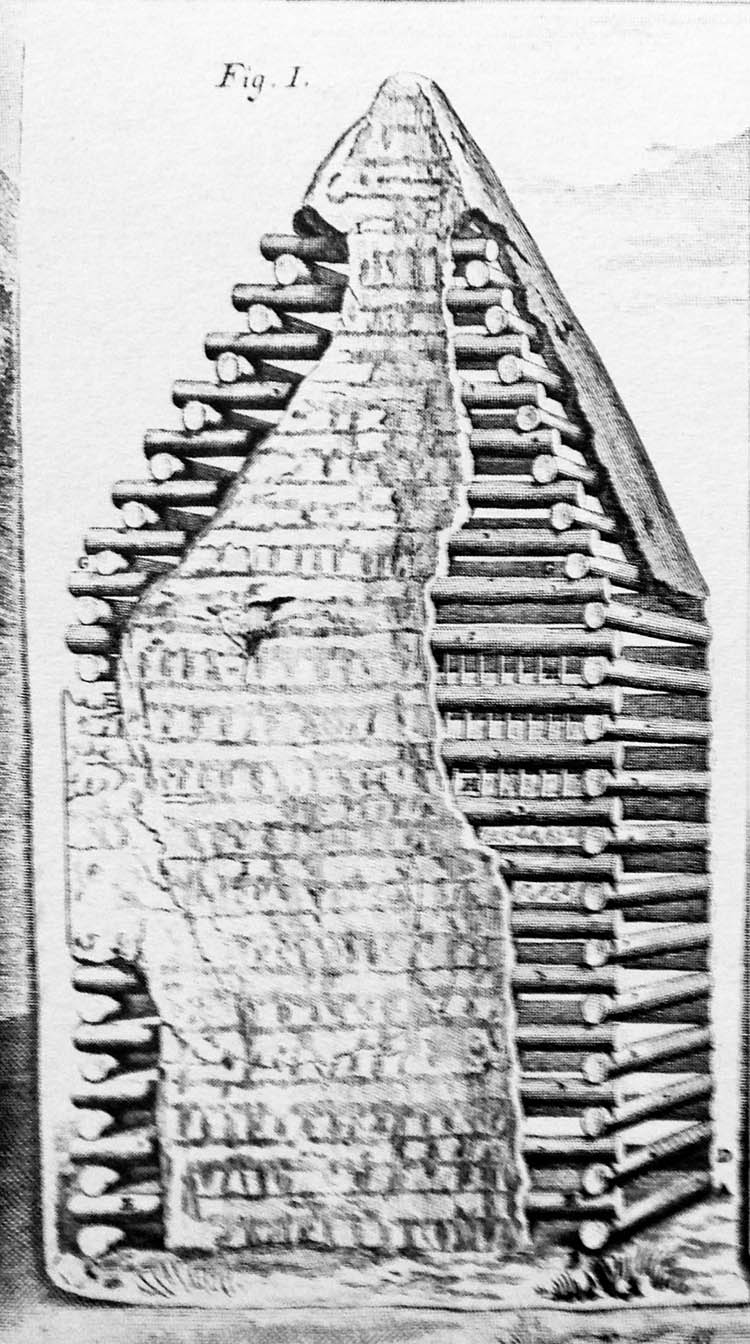 Fig. I.
G
G
E
D
A